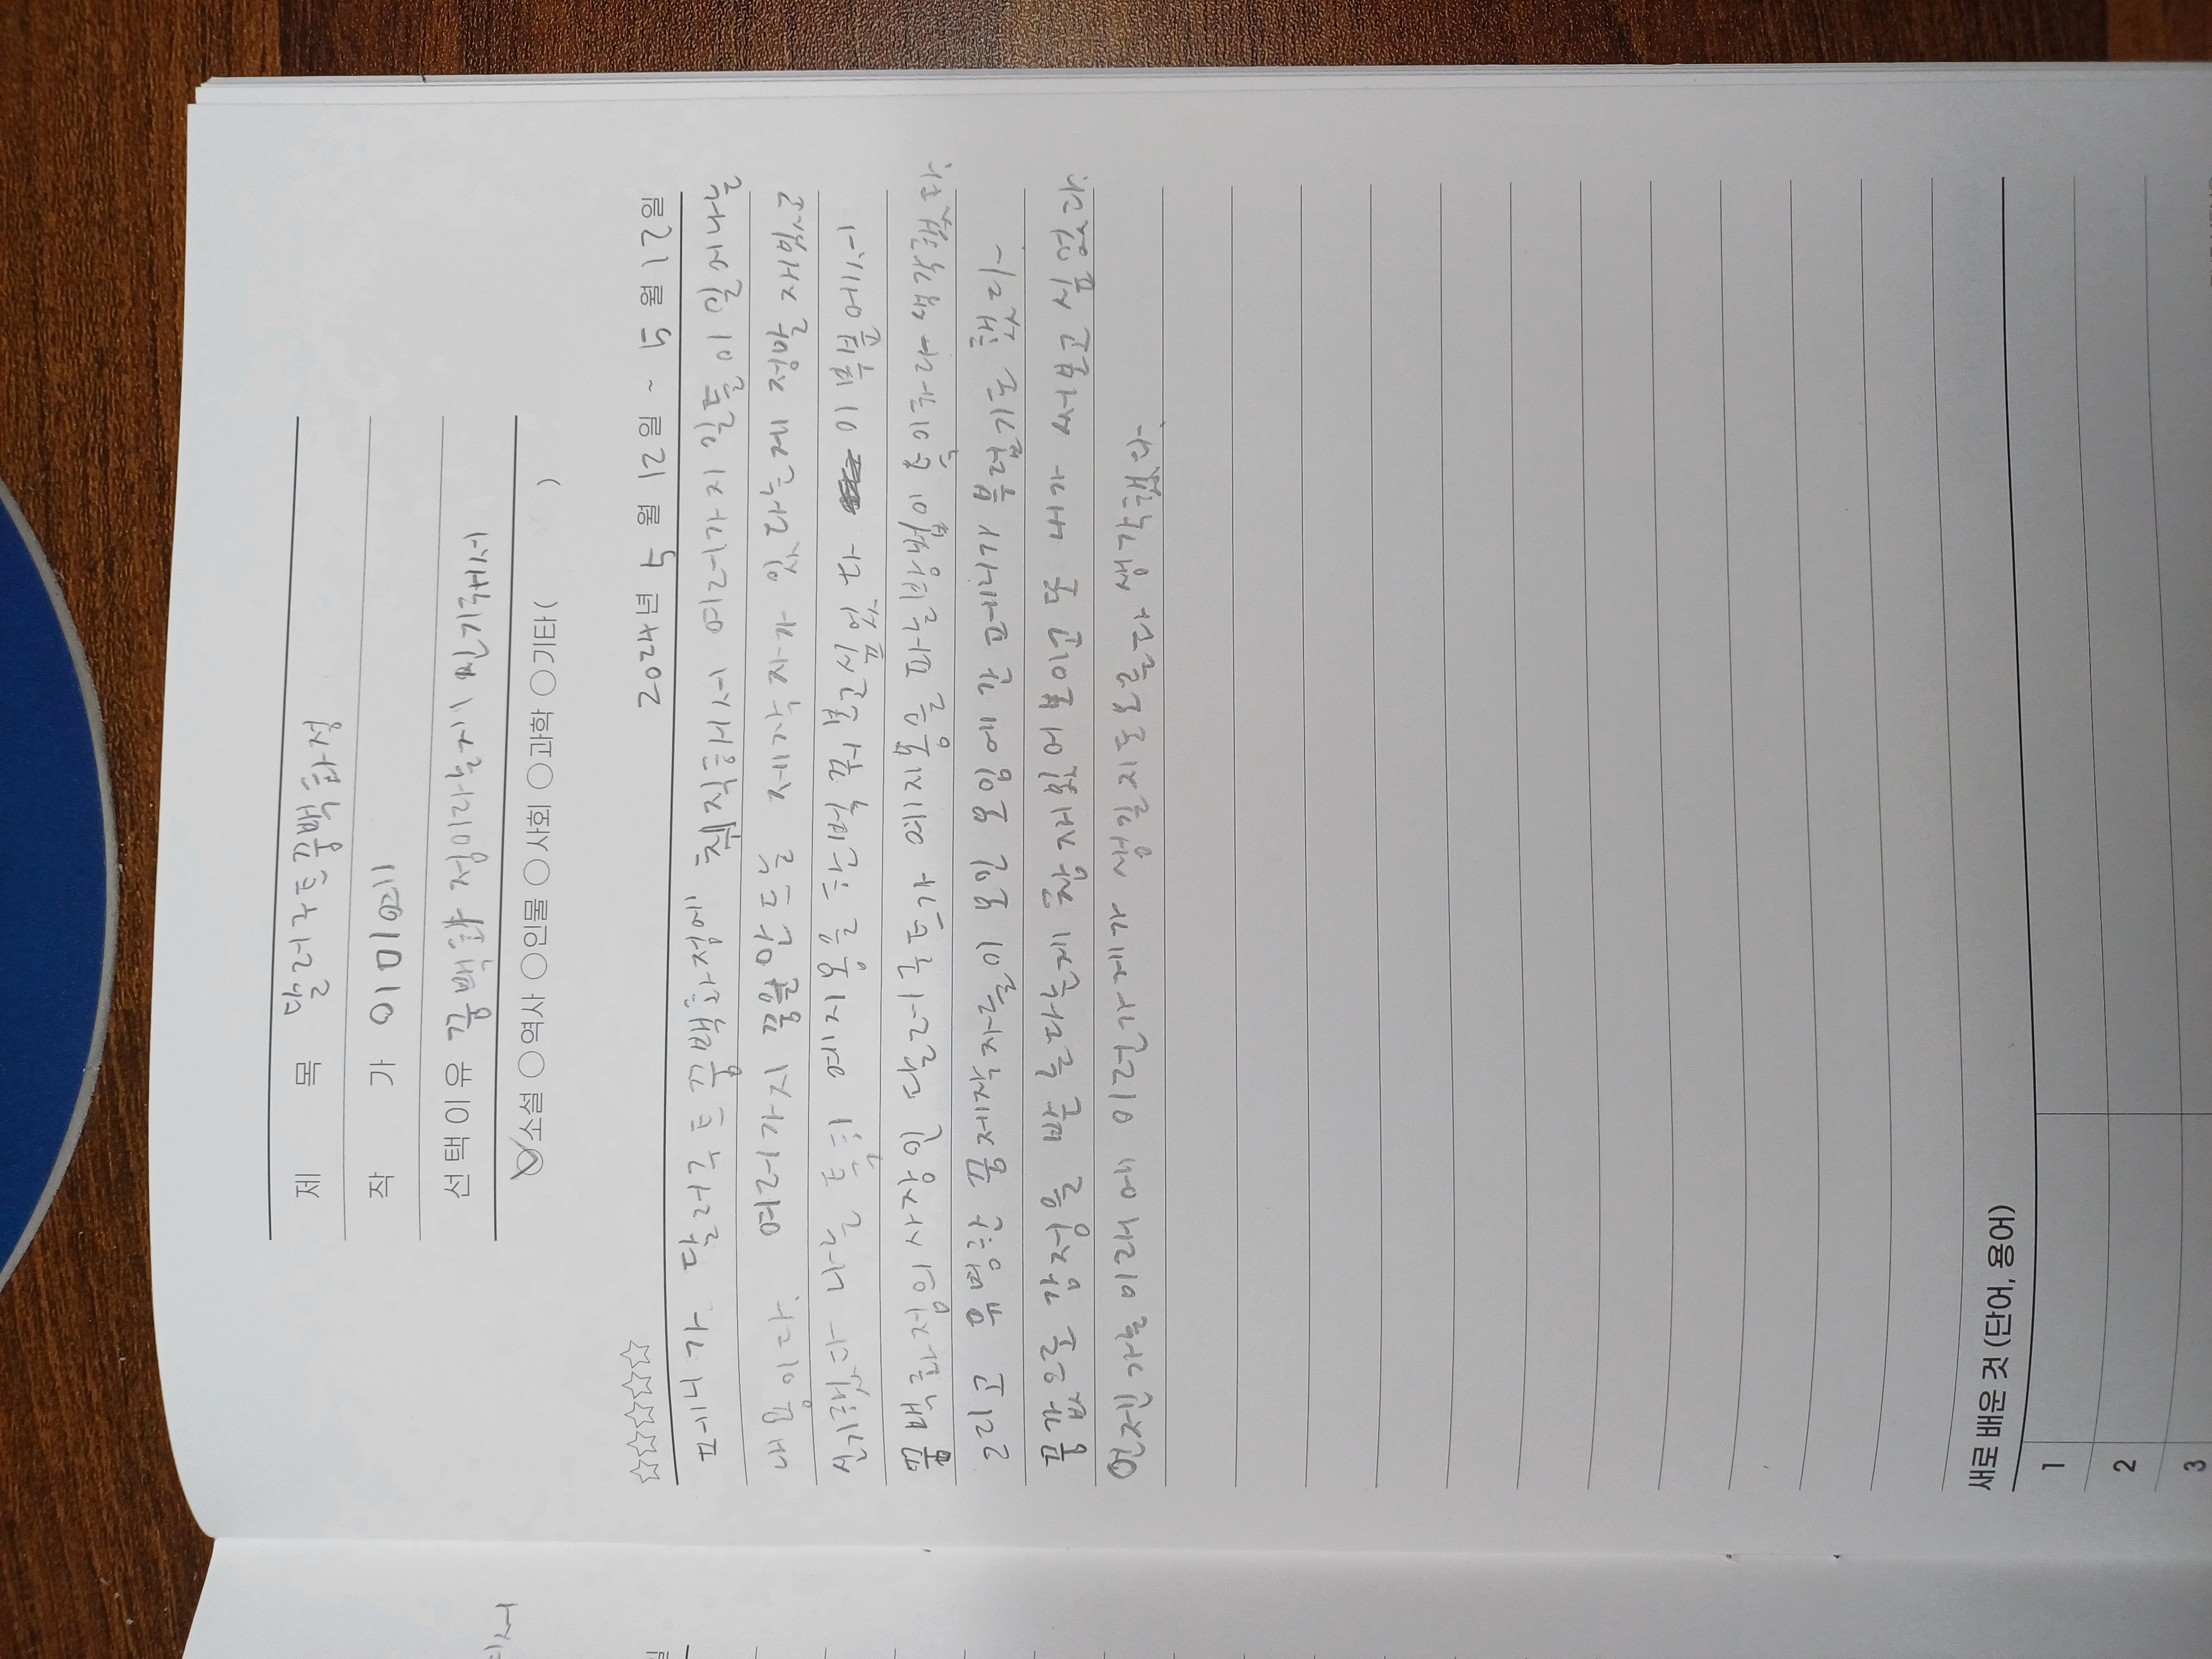 제 목 달러구트꿈백화점
작 가 이미예
선택이유 꿈백화점이라는게 신기해서
소설 ○역사 ○인물 ○사회 ○과학 ○기타( )
☆☆☆☆☆ 2024년 5월 12일 ~ 5월 12일
페니가 달러구트꿈백화점에 취직해서 여러가지 일들이 일어나는
내용이다. 여러가지 꿈을 만드는 제작자가 있다는게 정말 재밌고
신기했다 나는 특히 예지몽을 한번 꿔보고싶었다 이 부분에서
꿈백화점의 사장인 달러구트가 예지몽을 파는방법이 특이하다 생각했다.
그리고 유명한 꿈제작자들이 모인 모임에 간 페니가 부럽기도 했다
꿈값으로 감정을 받는다는게 참 재밌어 보이고 또 내가 써보고 싶었다.
언젠가는 미래에 이런가게가 생길지도모른다 생각했다
새로 배운 것 (단어, 용어)
1
2
3